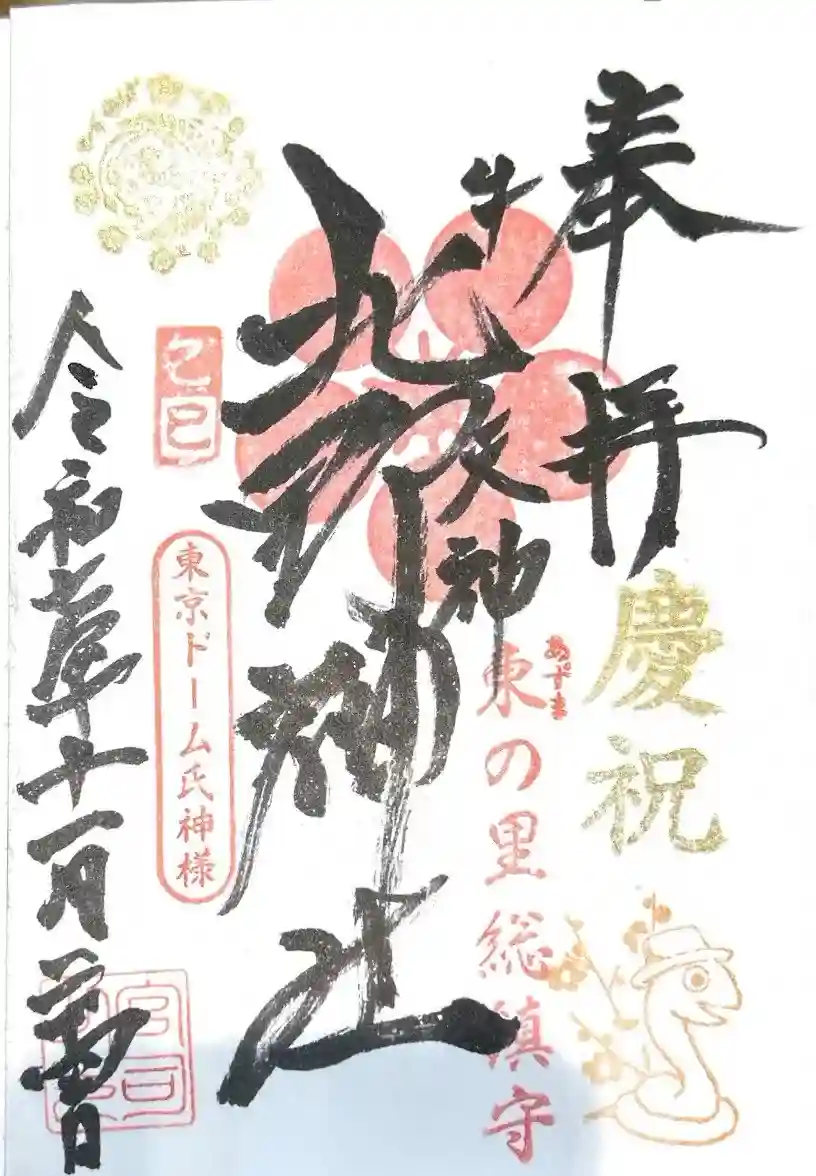 奉拝
慶祝
牛天神
あずま
東の里総鎮守
北野神社
乙巳
東京ドーム氏神様
令和七年十一月
宮司